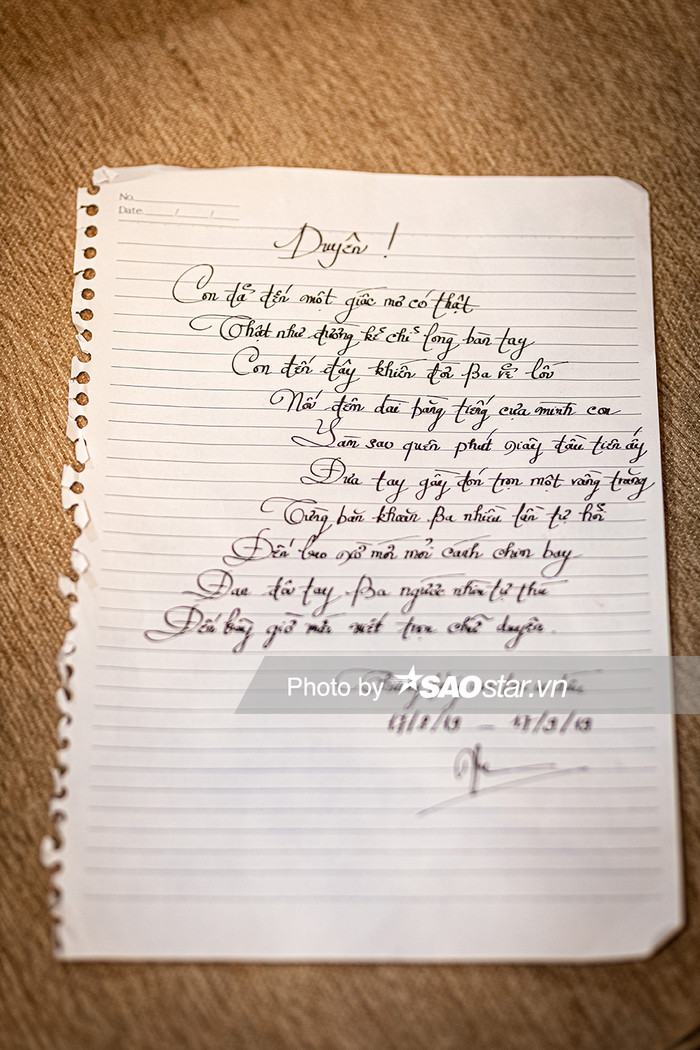 No.
Date / /
Duyên !
Con đã đến một giấc mơ có thật
Thật như đường kẻ chỉ lòng bàn tay
Con đến đây khiến đời Ba rẽ lối
Nối đêm dài bằng tiếng cựa mình con
Làm sao quên phút giây đầu tiên ấy
Đưa tay gầy đón trọn một vầng trăng
Từng băn khoăn Ba nhiều lần tự hỏi
Đến bao giờ mới mỏi cánh chim bay
Đan đôi tay Ba ngước nhìn tự thú
Đến bây giờ mới viết trọn chữ duyên.
Photo by SAOstar.vn
17/8/19 - 17/9/19